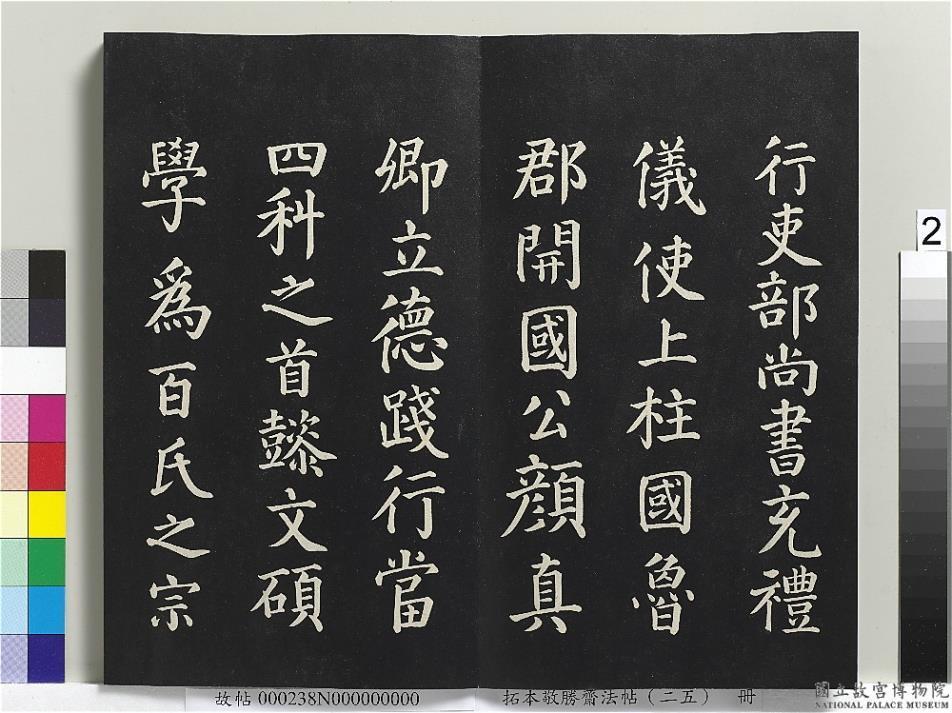 行吏部尚書充禮
儀使上柱國魯
郡開國公顏真
卿立德踐行當
四科之首懿文碩
學為百氏之宗
2
故帖 000238N000000000
拓本敬勝齋法帖（二五） 冊
國立故宮博物院
NATIONAL PALACE MUSEUM